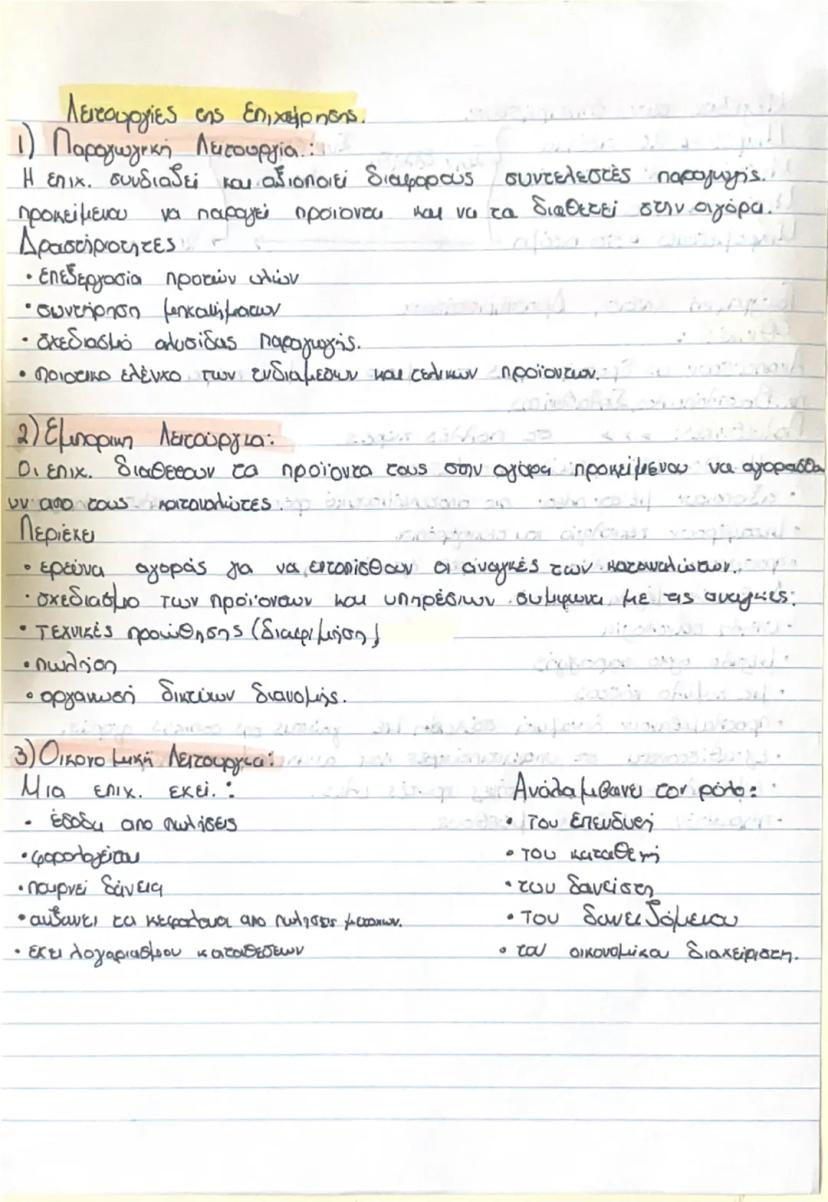 Λειτουργίες της Επιχείρησης.
1) Παραγωγική Λειτουργία:
Η επιχ. συνδιαζει και αξιοποιεί διαφορους συντελεστές παραγωγής.
προκείμενου να παραγει προϊοντα και να τα διαθετεί στην αγόρα.
Δραστήριοτητες
• επεξεργασία προτών υλών
• συντήρηση μηχανήματων
• σχεδιασμό αλυσίδας παραγωγής.
• ποιοτικο ελένκο των ενδιαμεσων και τελικων προϊοντων.
2) Εμπορικη Λειτούργια:
Οι επιχ. διαθεσουν τα προϊοντα τους στην αγόρα προκείμενου να αγορασθο
υν απο τους καταναλώτες.
Περιέχει
• ερεύνα αγοράς για να εντοπίσθουν οι αναγκές των καταναλώτων.
• σχεδιασμο των προϊοντων και υπηρέσιων συμφωνα με τις αναγκες:
• τεχνικές προώθησης (διαφημηση)
• πωληση
• οργανωσή δικτύων διανομής.
3) Οικονομική Λειτουργια:
Μια επιχ. εχει.:
• έσοδα απο πωλήσεις
• φορολογείται
• παιρνει δάνεια
• αυξανει τα κεφαλαια απο πωλησεις μετοχων.
• εχει λογαριασμου καταθεσεων
Ανάλαμβανει τον ρόλο:
• του επενδυτή
• του καταθετή
• του δανείστη
• του δανειζόμενου
• του οικονομικου διαχείριστη.